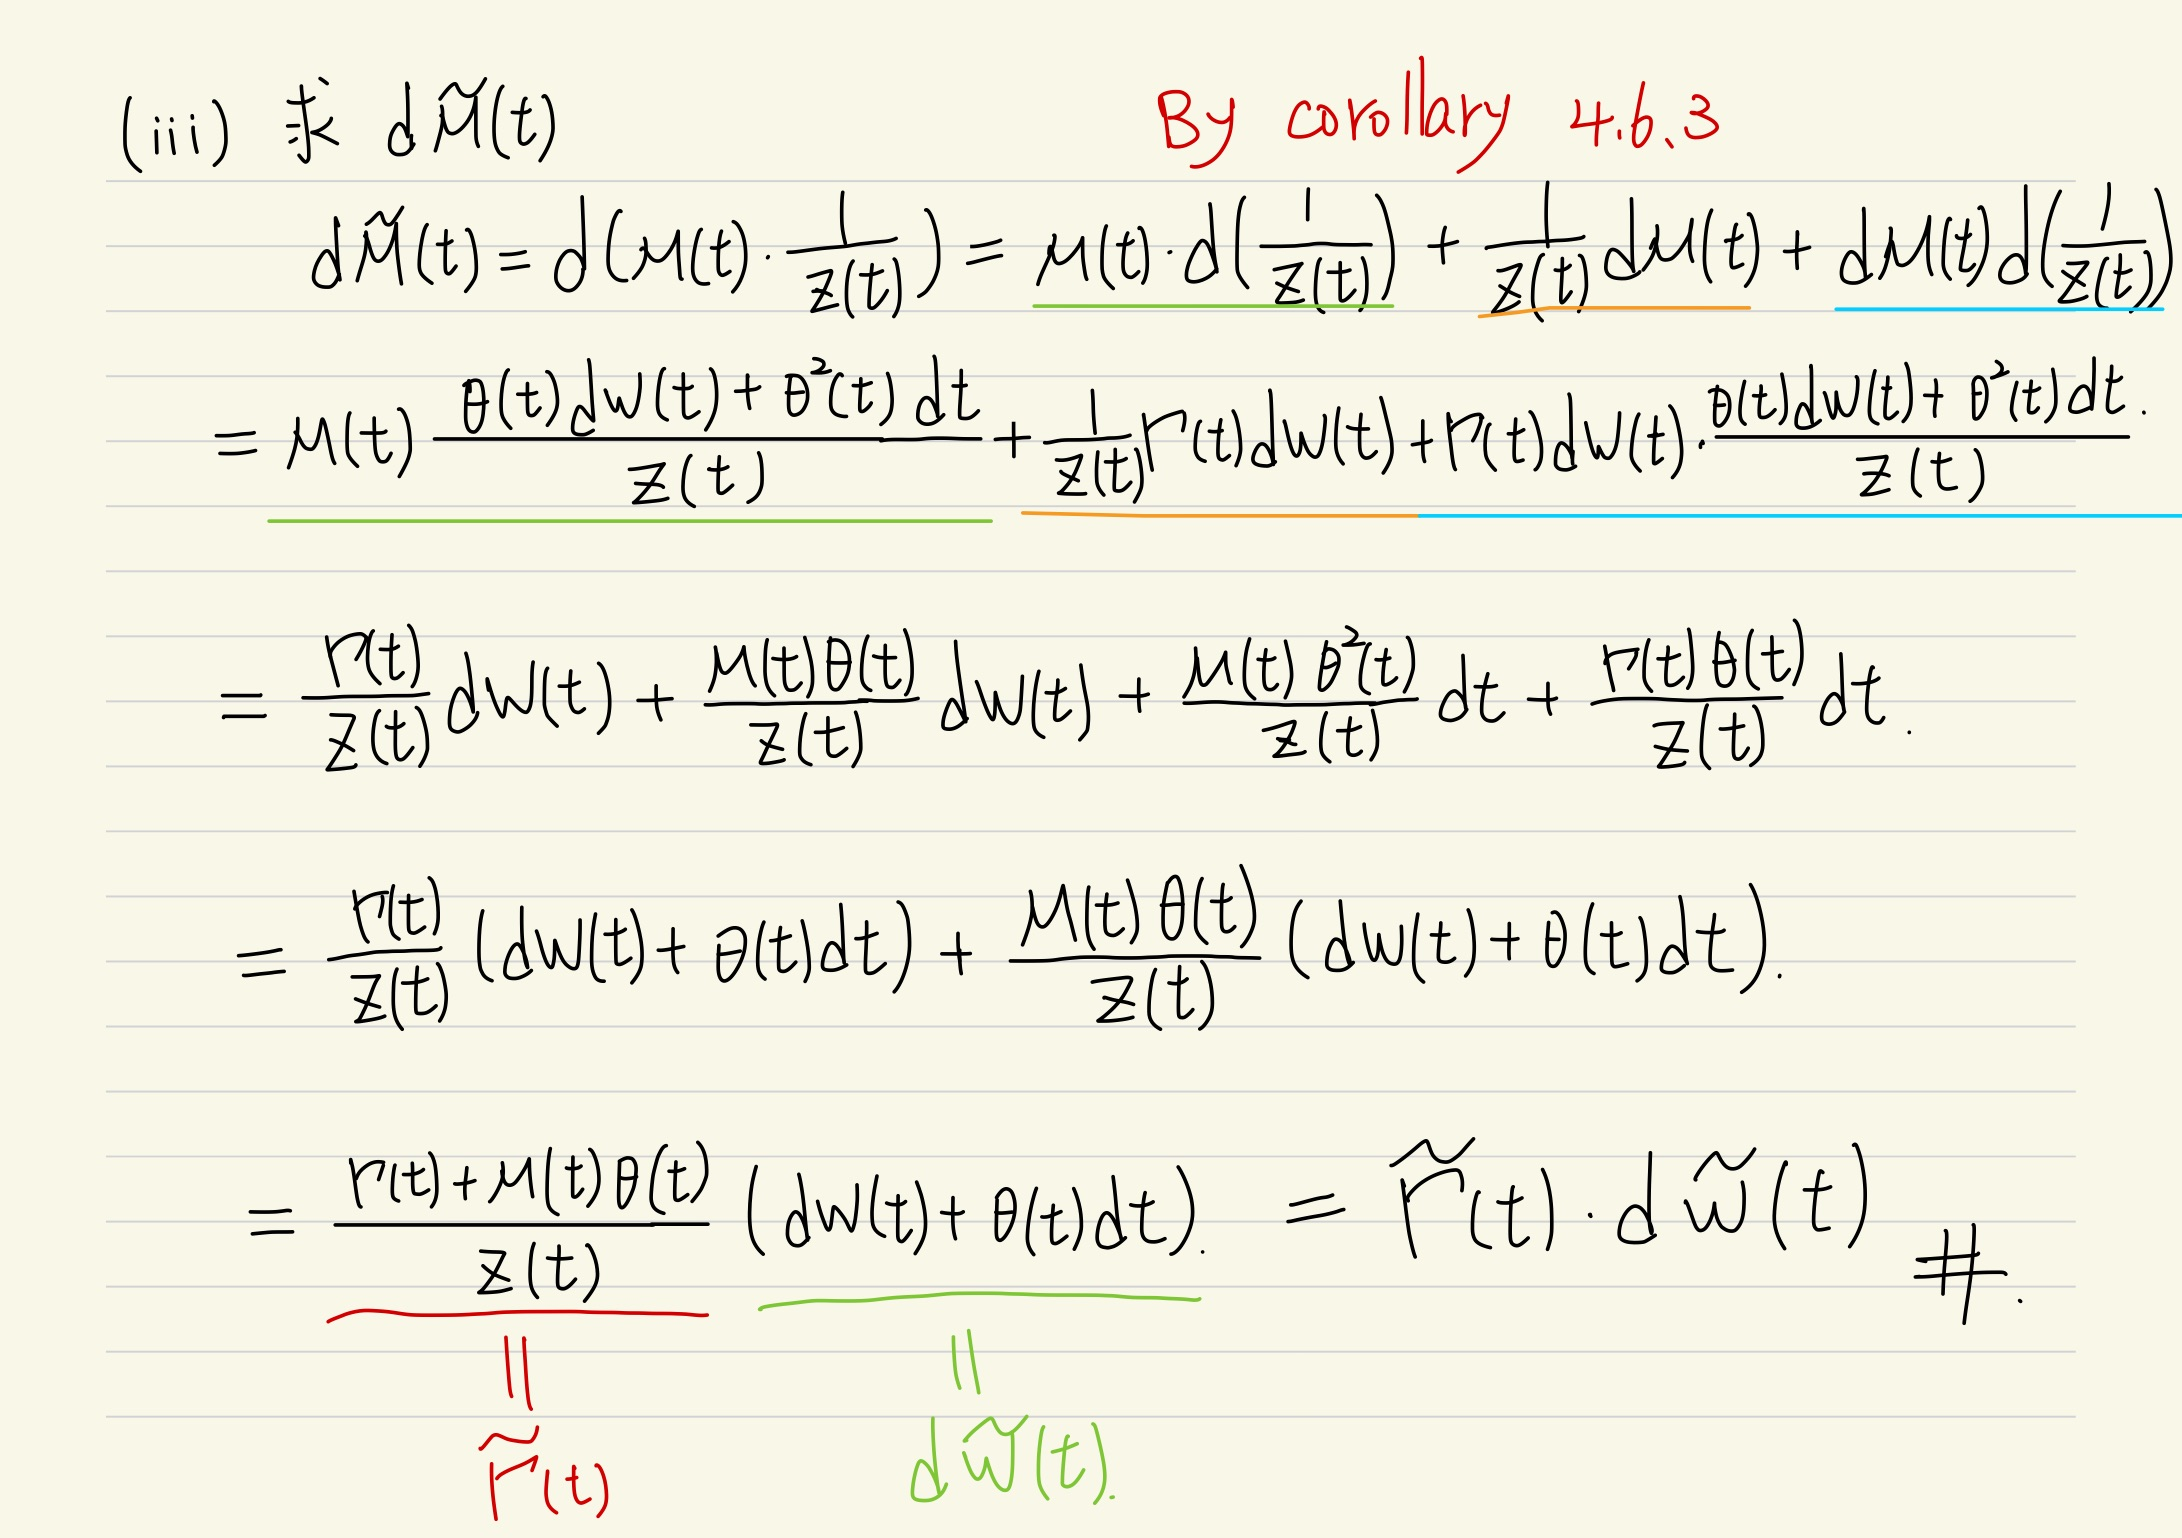 (iii) 求 dM̃(t)
By corollary 4.6.3
dM̃(t) = d(M(t)·1/Z(t)) = M(t)·d(1/Z(t)) + 1/Z(t) dM(t) + dM(t)d(1/Z(t))
= M(t) (θ(t)dW(t) + θ²(t)dt)/Z(t) + 1/Z(t) Γ(t)dW(t) + Γ(t)dW(t)·(θ(t)dW(t) + θ²(t)dt.)/Z(t)
= Γ(t)/Z(t) dW(t) + M(t)θ(t)/Z(t) dW(t) + M(t)θ²(t)/Z(t) dt + Γ(t)θ(t)/Z(t) dt.
= Γ(t)/Z(t) (dW(t) + θ(t)dt) + M(t)θ(t)/Z(t) (dW(t) + θ(t)dt).
= (Γ(t) + M(t)θ(t))/Z(t) (dW(t) + θ(t)dt). = Γ̃(t)·dW̃(t) #.
|| ||
Γ̃(t) dW̃(t).